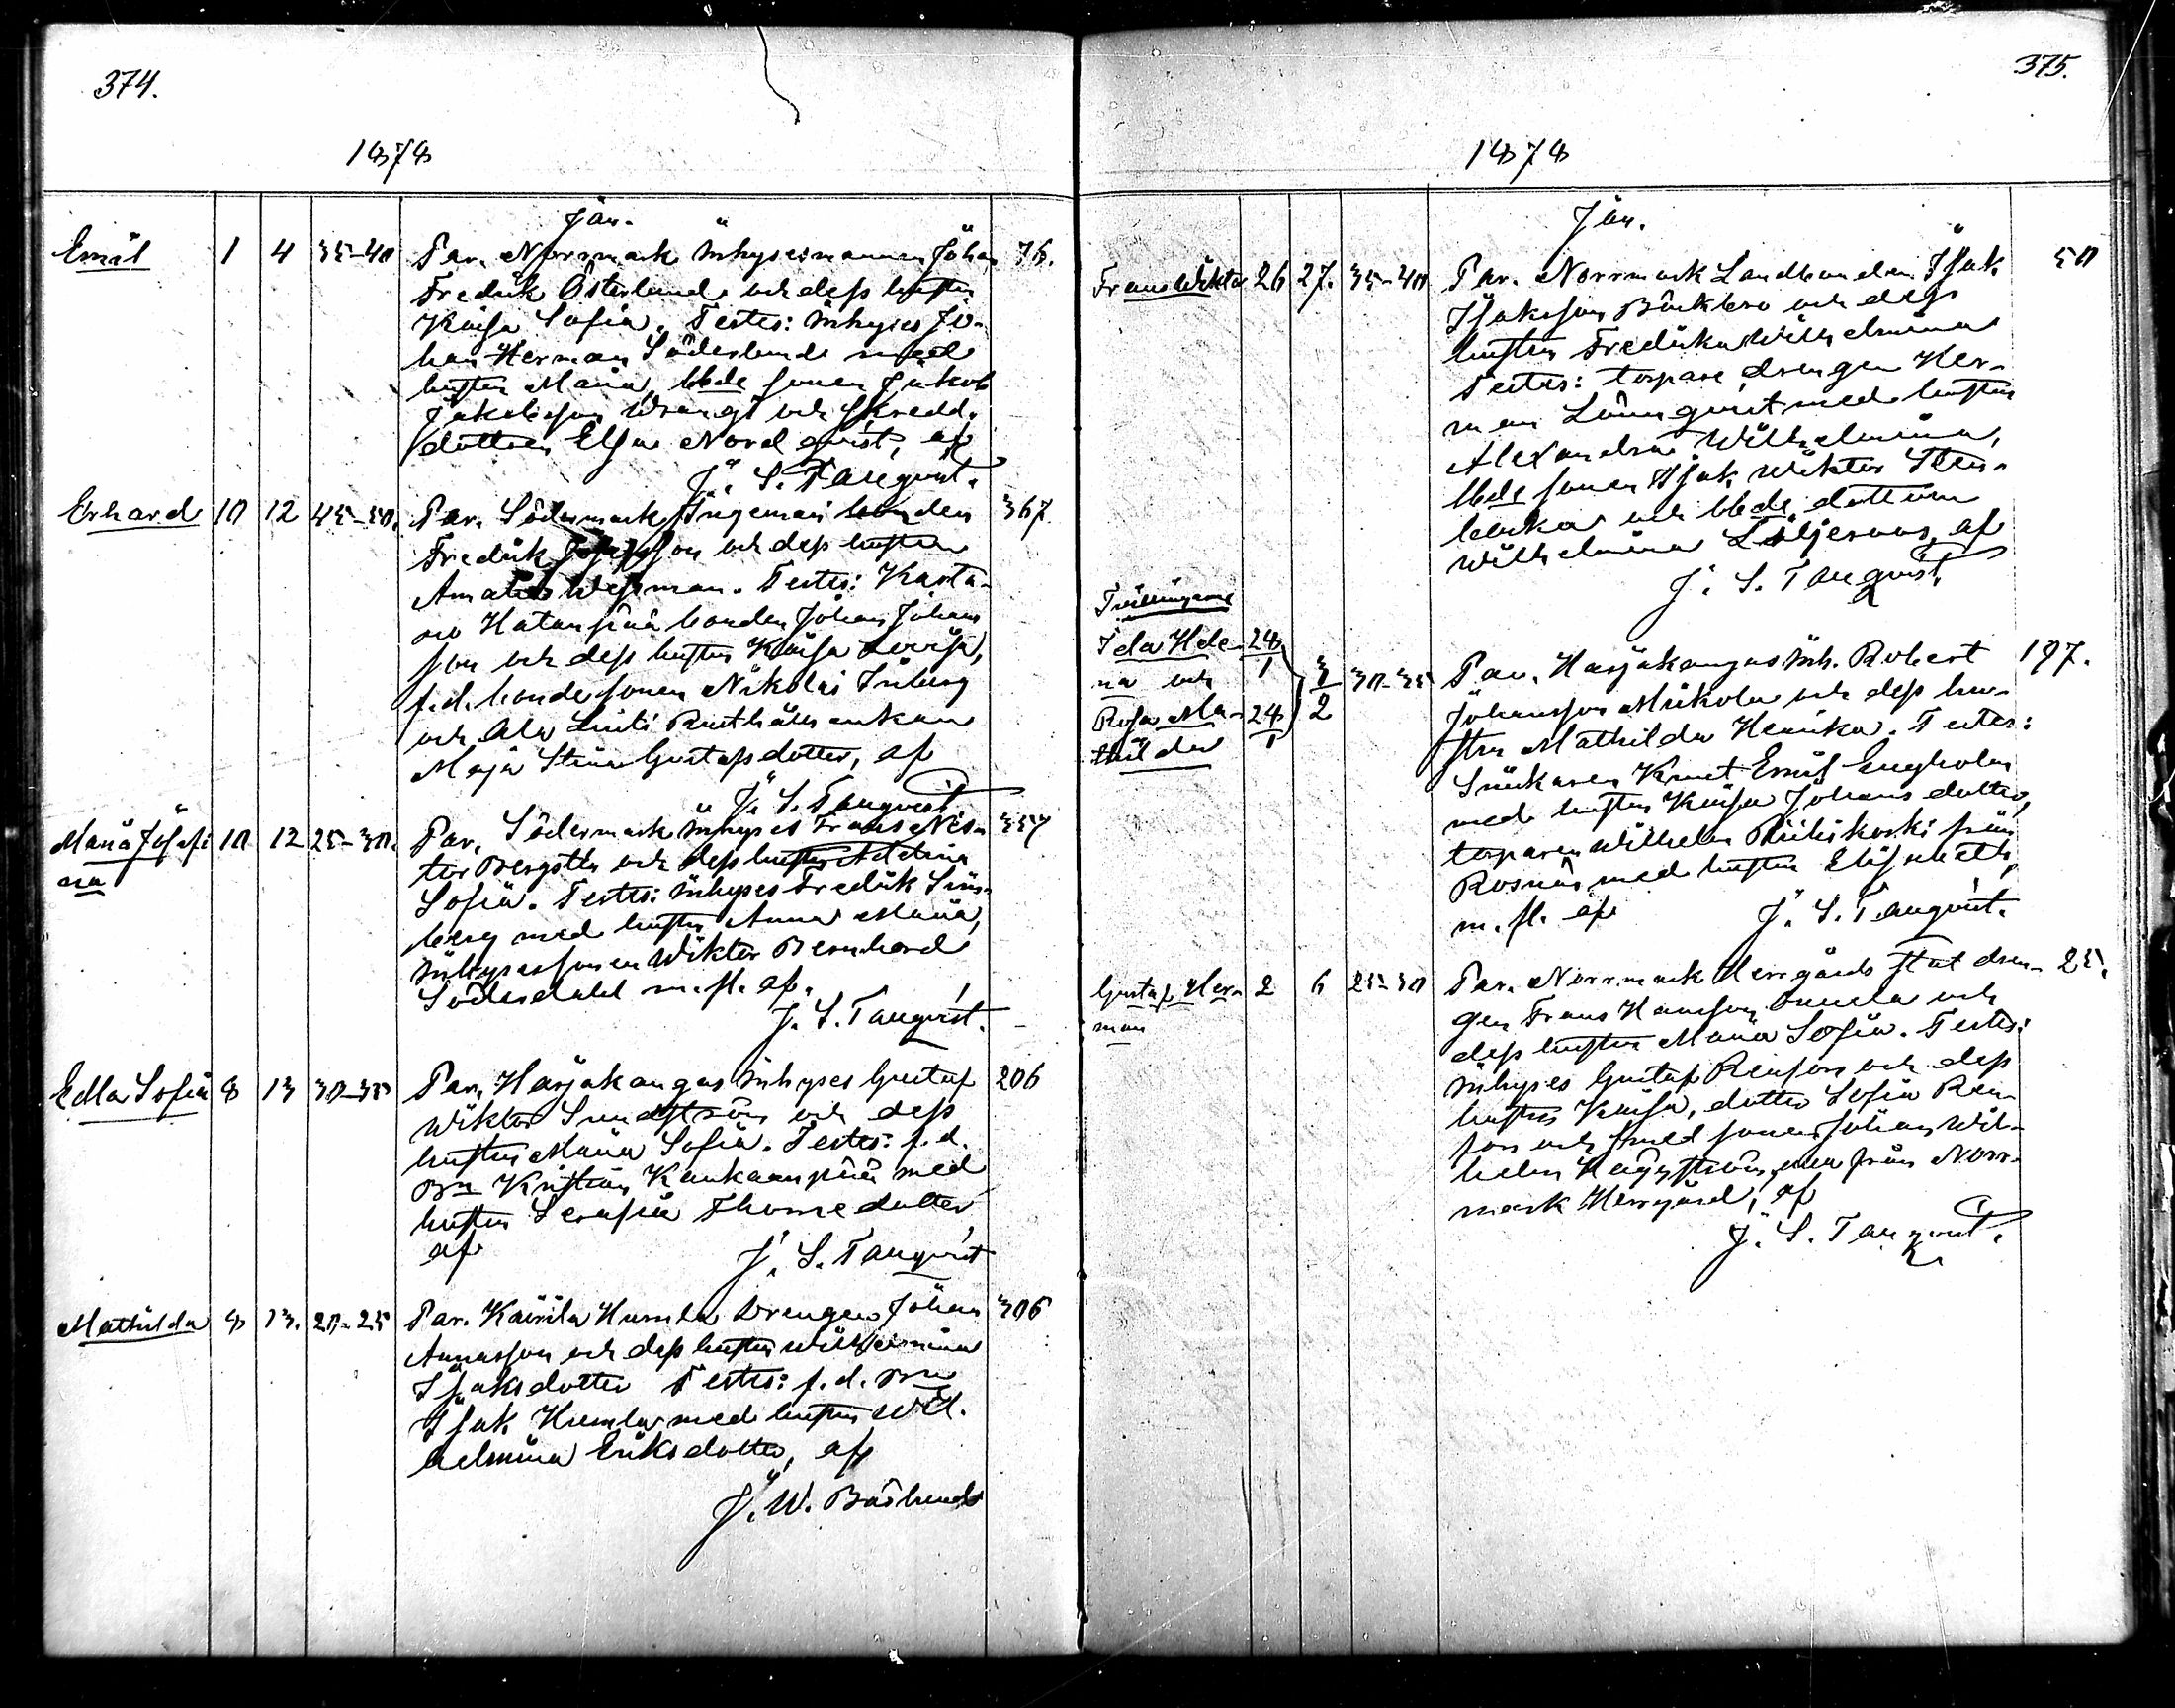 374.
1878
Jan.
Emil 1 4 35-40 Par. Norrmark inhysesmannen Johan 76.
Fredrik Österlund och dess hustru
Kaisa Sofia. Testes: inhyses Jo-
han Herman Söderlund med
hustru Maria, bde sonen Jakob
Jakobsson Wrangi och skredd.
dottren Elsa Nordqvist, af
J. S. Tanqvist.
Erhard 10 12 45-50. Par. Södermark Ingemari bonden 367
Fredrik Josefsson och dess hustru
Amalia Wessman. Testes: Kasta-
ro Hatanpää bonden Johan Johans
son och dess hustru Kaisa Lovisa,
f.d. bondesonen Nikolai Inberg
och Ala Linti Rusthålls enkan
Maja Stina Gustafsdotter, af
J. S. Tanqvist
Maria Josefi 10 12 25-30. Par. Södermark inhyses Frans Vik- 357
na
tor Bergsth och dess hustru Adelina
Sofia. Testes: inhyses Fredrik Sön-
berg med hustru Anna Maria,
inhysessonen Wiktor Bernhard
Söderdahl m. fl. af.
J. S. Tanqvist.
Edla Sofia 8 13 30-35 Par. Harjakangas inhyses Gustaf 206
Wiktor Sundström och dess
hustru Maria Sofia. Testes: f. d.
Bn Kristian Kankaanpää med
hustru Serafia Thomedotter
af J. S. Tanqvist
Mathilda 8 13. 20-25 Par. Kairila Humla Drengen Johan 306
Annasson och dess hustru Wilhelmina
Isaksdotter Testes: f. d. Bn
Isak Humla med hustru Wil-
helmina Eriksdotter, af
J. W. Båslund
375.
1878
Jan.
Frans Wiktor 26 27. 35-40 Par. Norrmark Landbonden Isak 50
Isaksson Bäckbro och dess
hustru Fredrika Wilhelmina
Testes: torpare drengen Her-
man Lönnqvist med hustru
Alexandra Wilhelmina,
bde sonen Isak Wiktor Sten-
backa och bde dottern
Wilhelmina Liljeroos, af
J. S. Tanqvist.
Tvillingarne
Ida Hele- 28/1
na och 3/2 30-35 Par. Harjakangas inh. Robert 197.
Rosa Ma- 28/1
thilda
Johansson Mikola och dess hu-
stru Mathilda Henrika. Testes:
Snickaren Knut Emil Engholm
med hustru Kaisa Johansdotter,
torparen Wilhelm Riihikoski från
Rosnäs med hustru Elisabeth,
m. fl. af J. S. Tanqvist.
Gustaf Her- 2 6 25-30 Par. Norrmark Herrgårds statdren- 25.
man
gen Frans Hansson och
dess hustru Maria Sofia. Testes:
inhyses Gustaf Renfors och dess
hustru Kaisa, dotter Sofia Ren-
fors och smed sonen Johan Wil-
helm Häggström, alla från Norr-
mark Herrgård, af
J. S. Tanqvist.